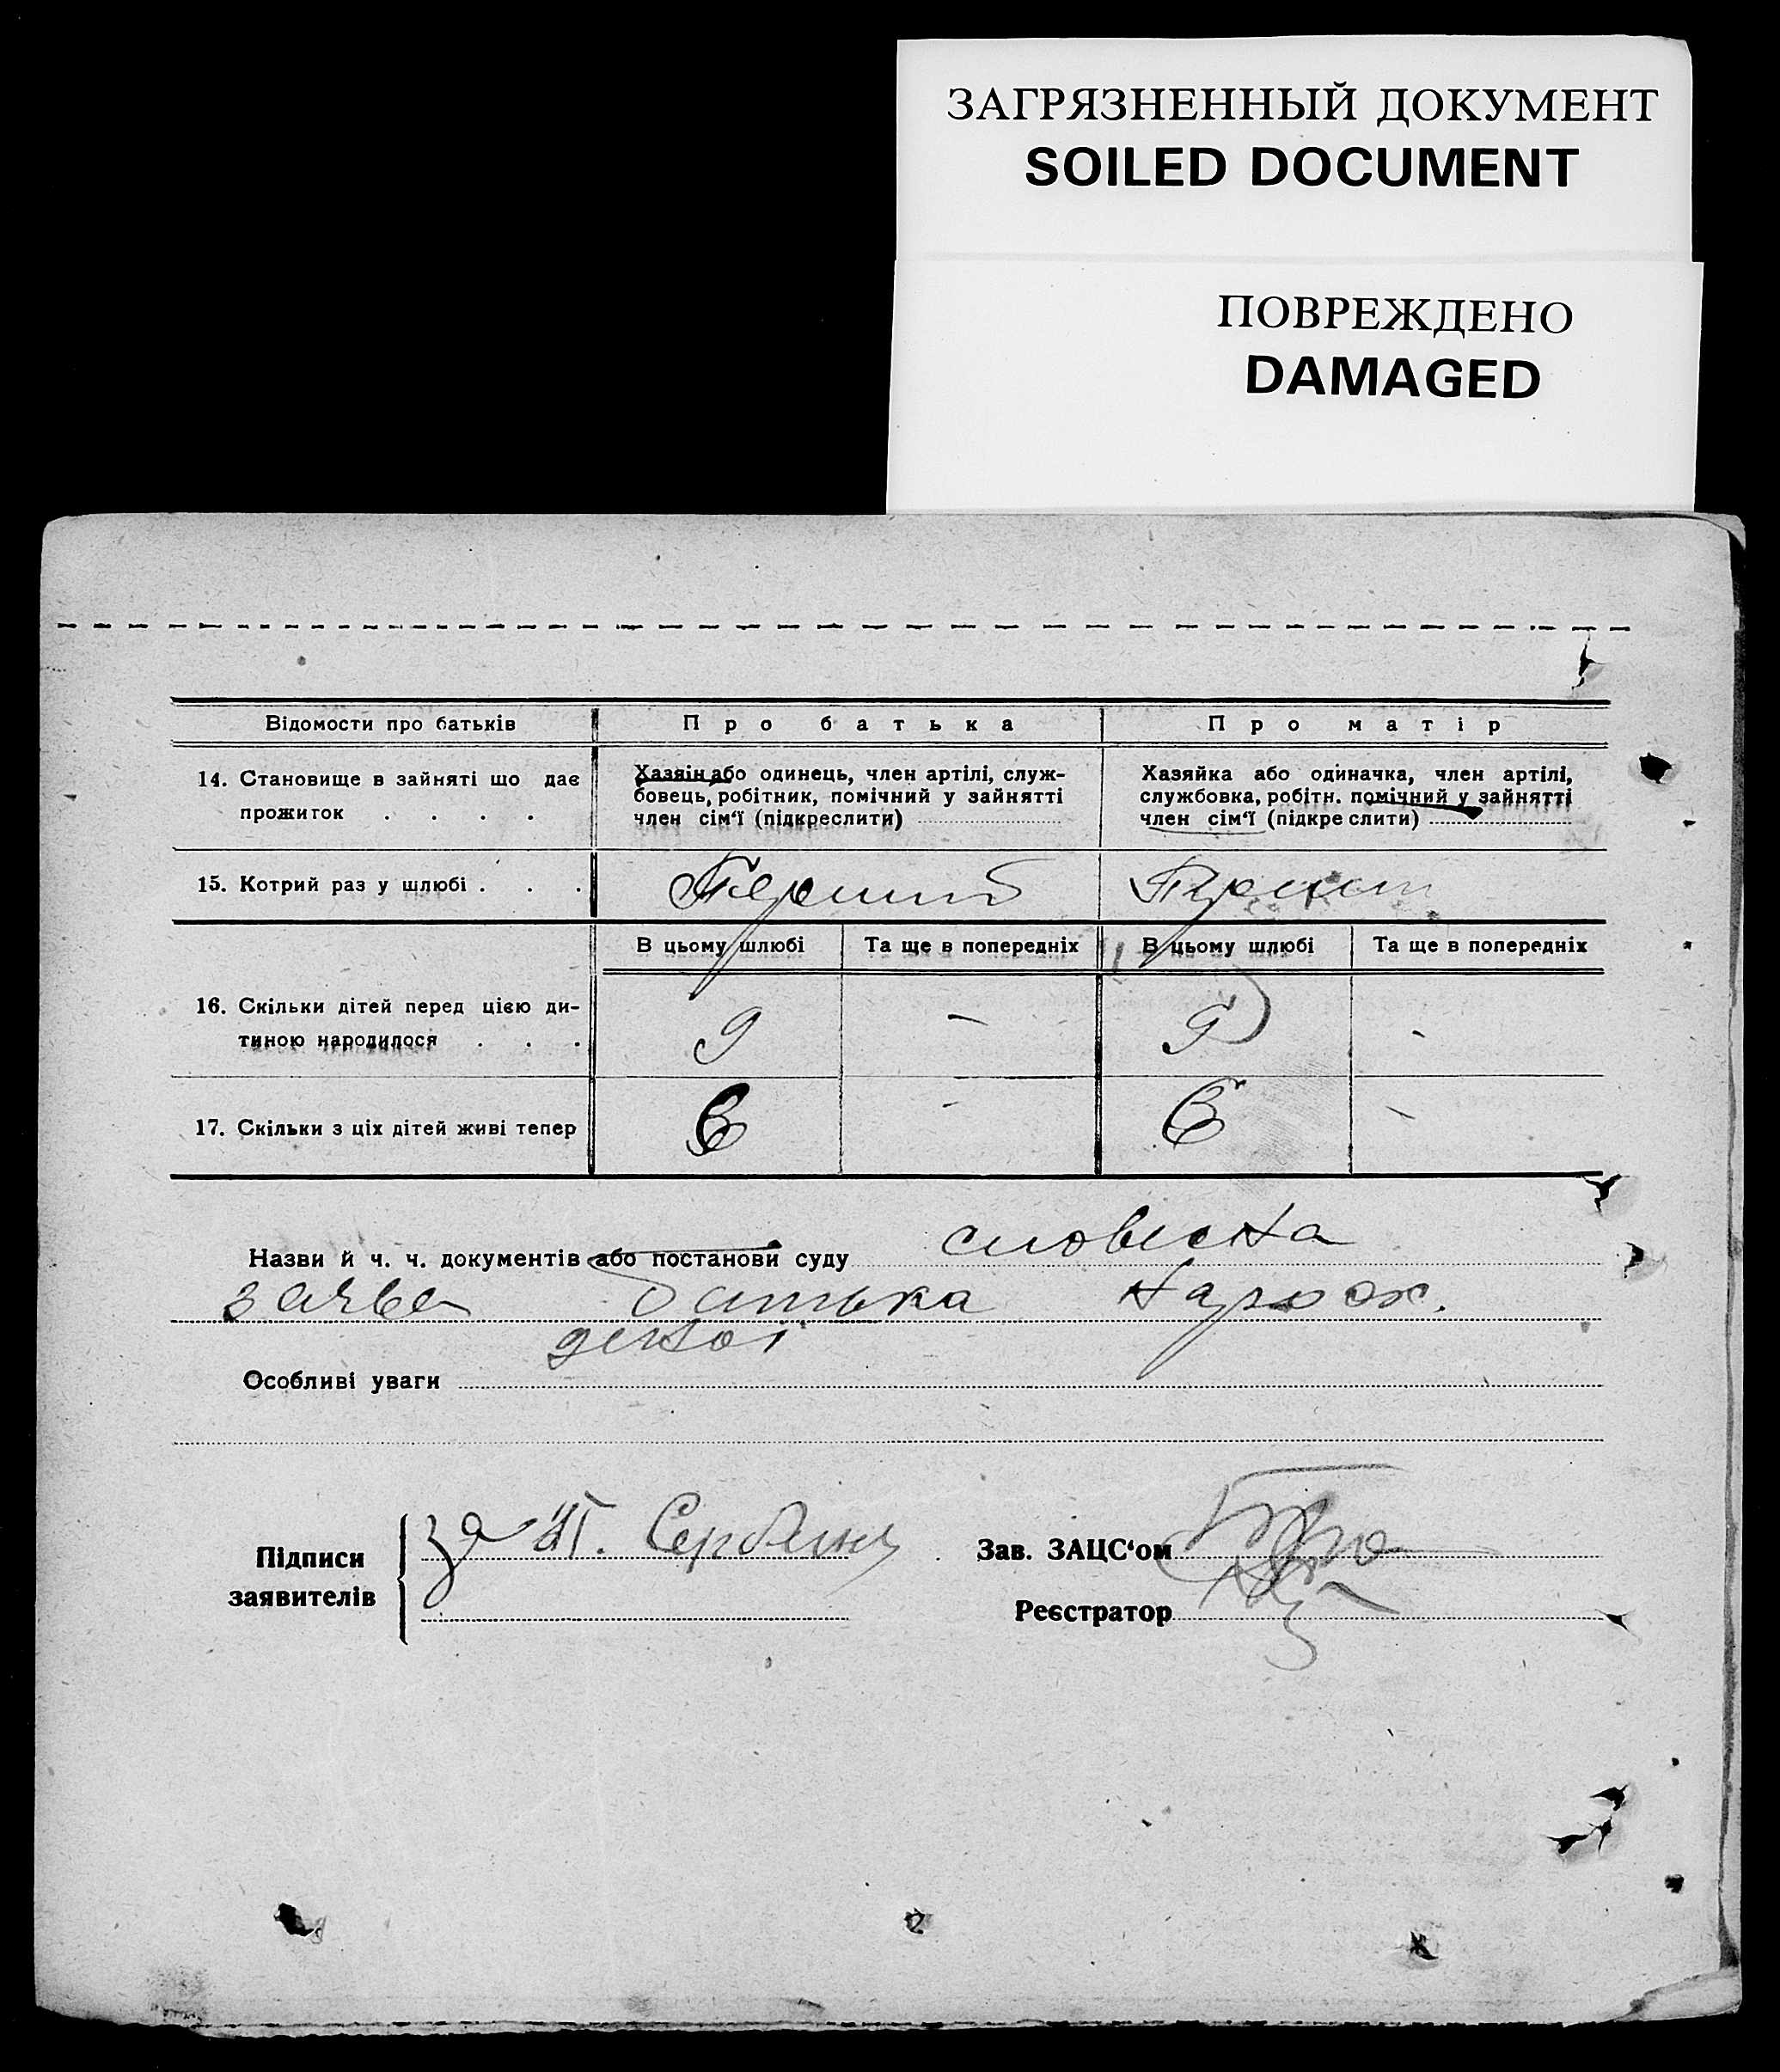 ЗАГРЯЗНЕННЫЙ ДОКУМЕНТ
SOILED DOCUMENT
ПОВРЕЖДЕНО
DAMAGED
Відомости про батьків Про батька Про матір
14. Становище в зайняті що дає прожиток . . . .
Хазяїн або одинець, член артілі, служ-
бовець, робітник, помічний у зайнятті
член сім'ї (підкреслити)
Хазяйка або одиначка, член артілі,
службовка, робітн. помічний у зайнятті
член сім'ї (підкреслити)
15. Котрий раз у шлюбі . . . Перший Перший
В цьому шлюбі Та ще в попередніх В цьому шлюбі Та ще в попередніх
16. Скільки дітей перед цією ди-
тиною народилося . . . 9 - 9 -
17. Скільки з ціх дітей живі тепер 6 - 6 -
Назви й ч. ч. документів або постанови суду словесна
заява батька
Особливі уваги
Підписи
заявителів
за
Зав. ЗАЦС'ом
Реєстратор